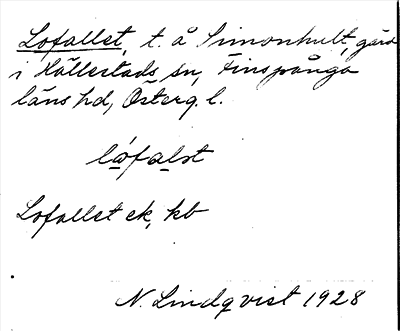 Lofallet, t. å Simonhult, gård
i Hällestads sn, Finspånga
läns hd, Österg. l.
lófalst
Lofallet ek, kb
N. Lindqvist 1928